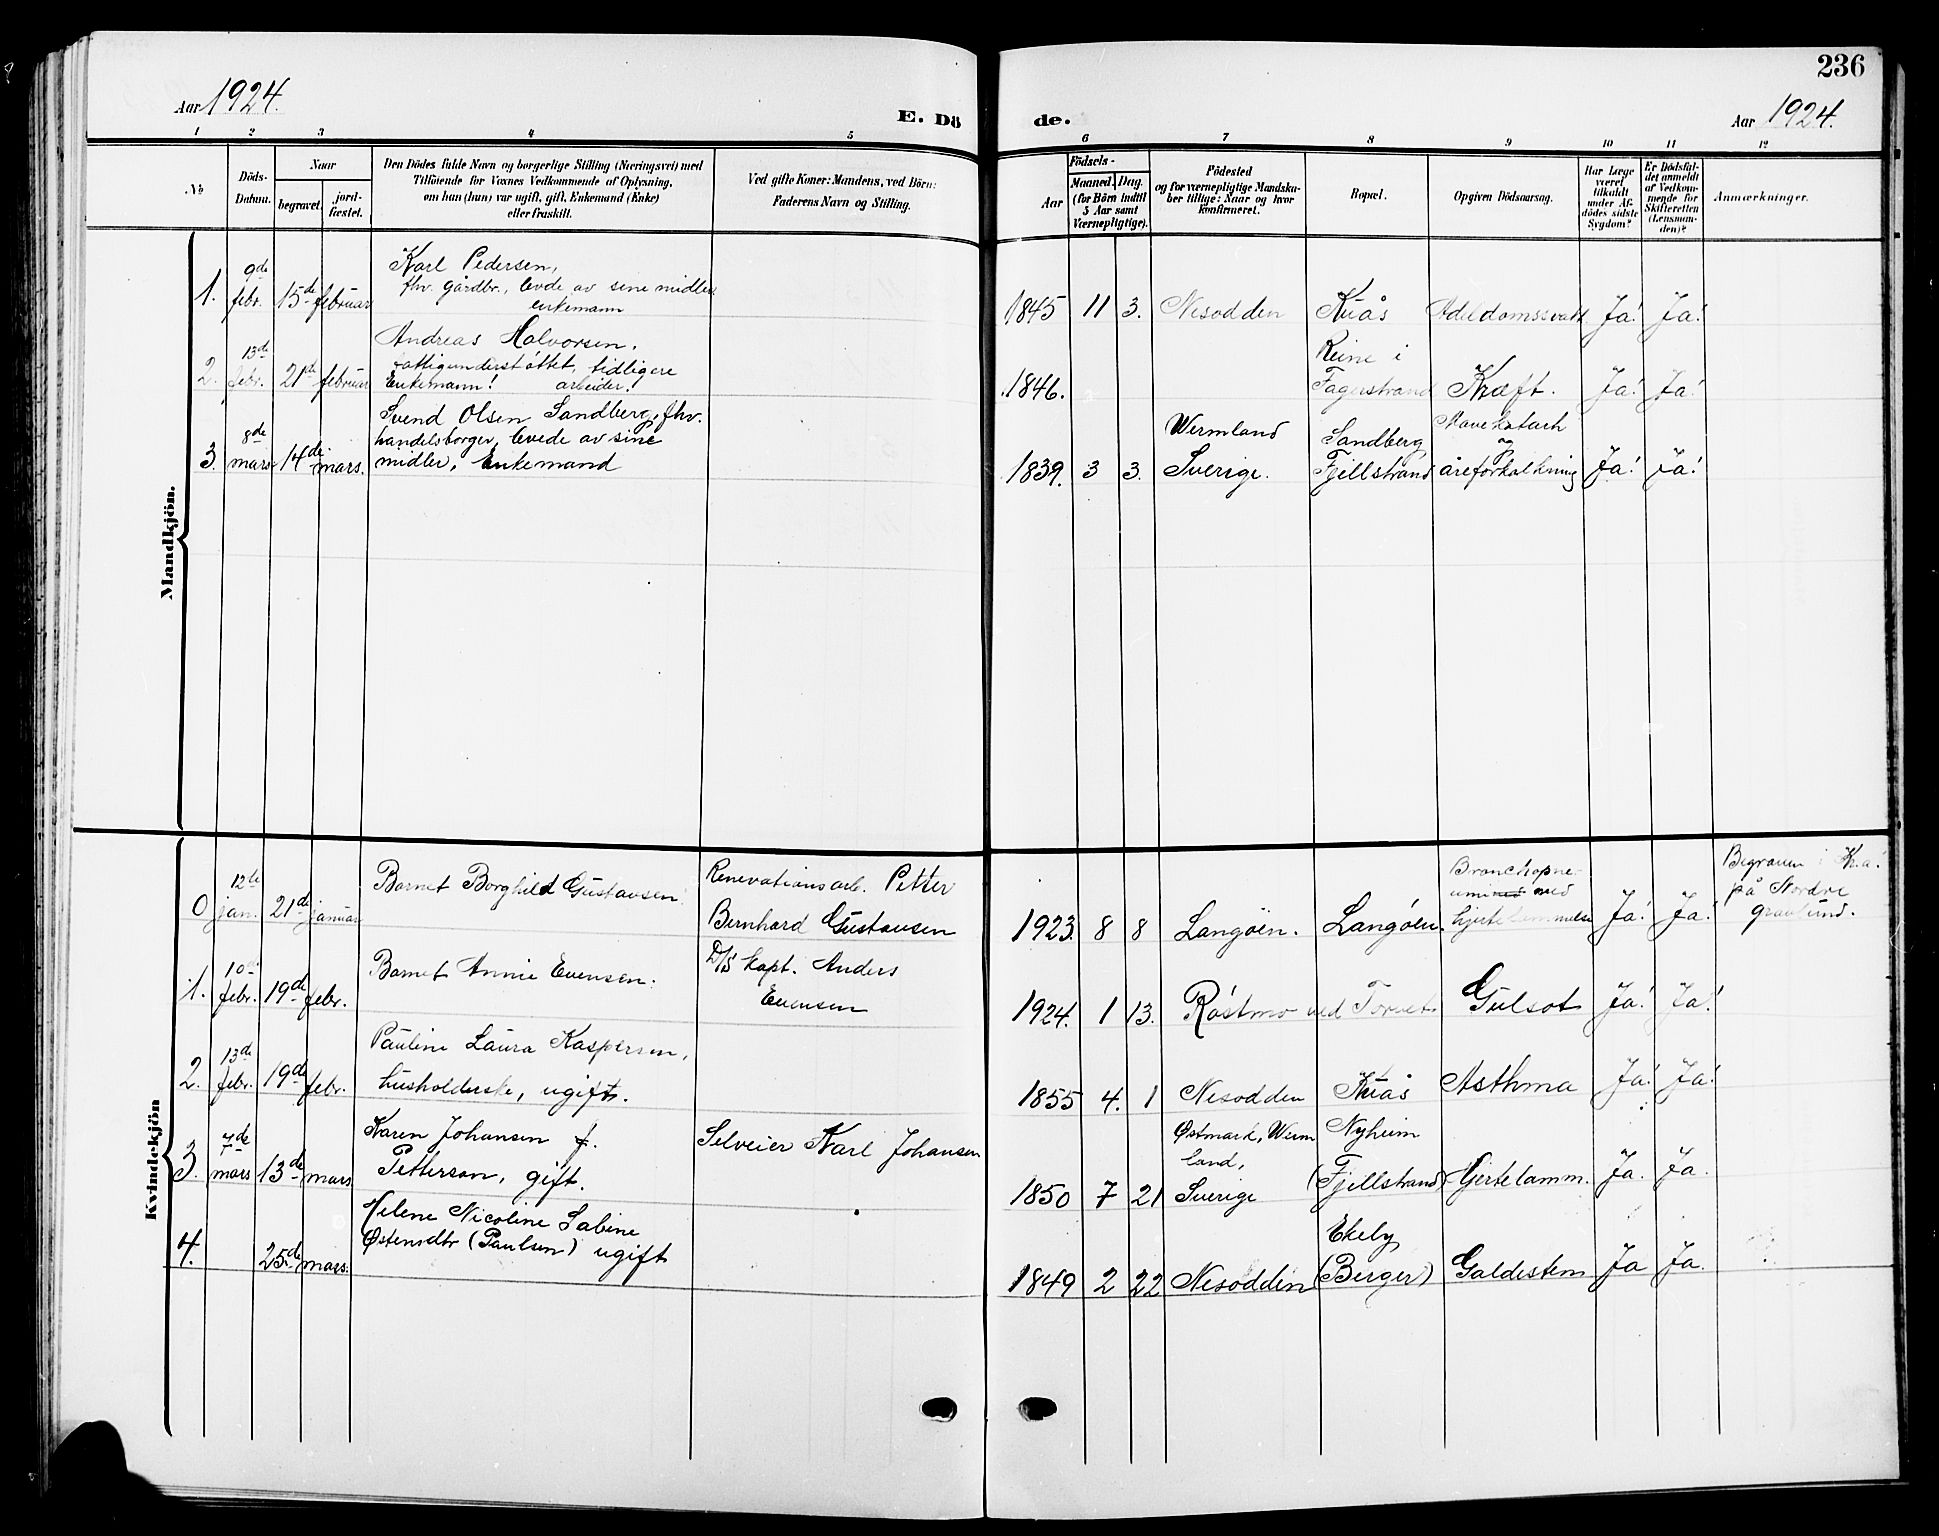 236
Aar 1924.
E. Dö
de.
Aar 1924.
1 2 3 4 5
6 7 8 9 10 11 12
No
Döds-
Datum.
Naar
begravet.
jord-
fæstet.
Den Dödes fulde Navn og borgerlige Stilling (Næringsvei) med
Tilföiende for Voxnes Vedkommende af Oplysning,
om han (hun) var ugift, gift, Enkemand (Enke)
eller fraskilt.
Ved gifte Koner: Mandens, ved Börn:
Faderens Navn og Stilling.
Födsels-
Aar
Maaned. Dag.
(for Börn indtil
5 Aar samt
Værnepligtige).
Födested
og for værnepligtige Mandska-
ber tillige: Naar og hvor
konfirmeret.
Bopæl.
Opgiven Dödsaarsag.
Har Læge
været
tilkaldt
under Af-
dödes sidste
Sygdom?
Er Dödsfal-
det anmeldt
af Vedkom-
mende for
Skifteretten
(Lensman-
den)?
Anmærkninger.
Mandkjön.
1. 9de febr. 15de februar
Karl Pedersen,
fhv. gårdbr., levde av sine midler
enkemann
1845 11 3. Nesodden Kuås Ja! Ja!
2. 13de febr. 21de februar
Andreas Halvorsen,
fattigunderstöttet, tidligere
Enkemann! arbeider!
1846. Reine i
Fagerstrand Kræft. Ja! Ja!
3. 8de mars 14de mars.
Svend Olsen Sandberg, fhv.
handelsborger, levede av sine
midler, Enkemand
1839. 3 3. Wermland
Sverige. Sandberg
Fjellstrand Mavekatarh
åreforkalkning Ja! Ja!
Kvindekjön
0 12te jan. 21de januar
Barnet Borghild Gustavsen.
Renovationsarb. Petter
Bernhard Gustavsen
1923. 8 8 Langöen. Langöen. Bronchopne-
med
Ja! Ja! Begraven i Kr.a.
på Nordre
gravlund.
1. 10de febr. 19de febr.
Barnet Annie Evensen.
D/S kapt. Anders
Evensen
1924. 1 13. Röstmo ved Torvet. Gulsot Ja! Ja!
2. 13de febr. 19de febr.
Pauline Laura Kaspersen,
husholderske, ugift.
1855 4. 1 Nesodden Kuås Asthma Ja! Ja!
3. 7de mars 13de mars
Karen Johansen f.
Petterson, gift.
Selveier Karl Johansen
1850 7 21 Østmark, Werm
land,
Sverige Nyheim
(Fjellstrand) Hjertelamm. Ja. Ja.
4. 25de mars.
Helene Nicoline Sabine
Østensdtr (Paulsen) ugift
1849 2 22 Nesodden Ekeby
(Berger) Galdesten Ja Ja.